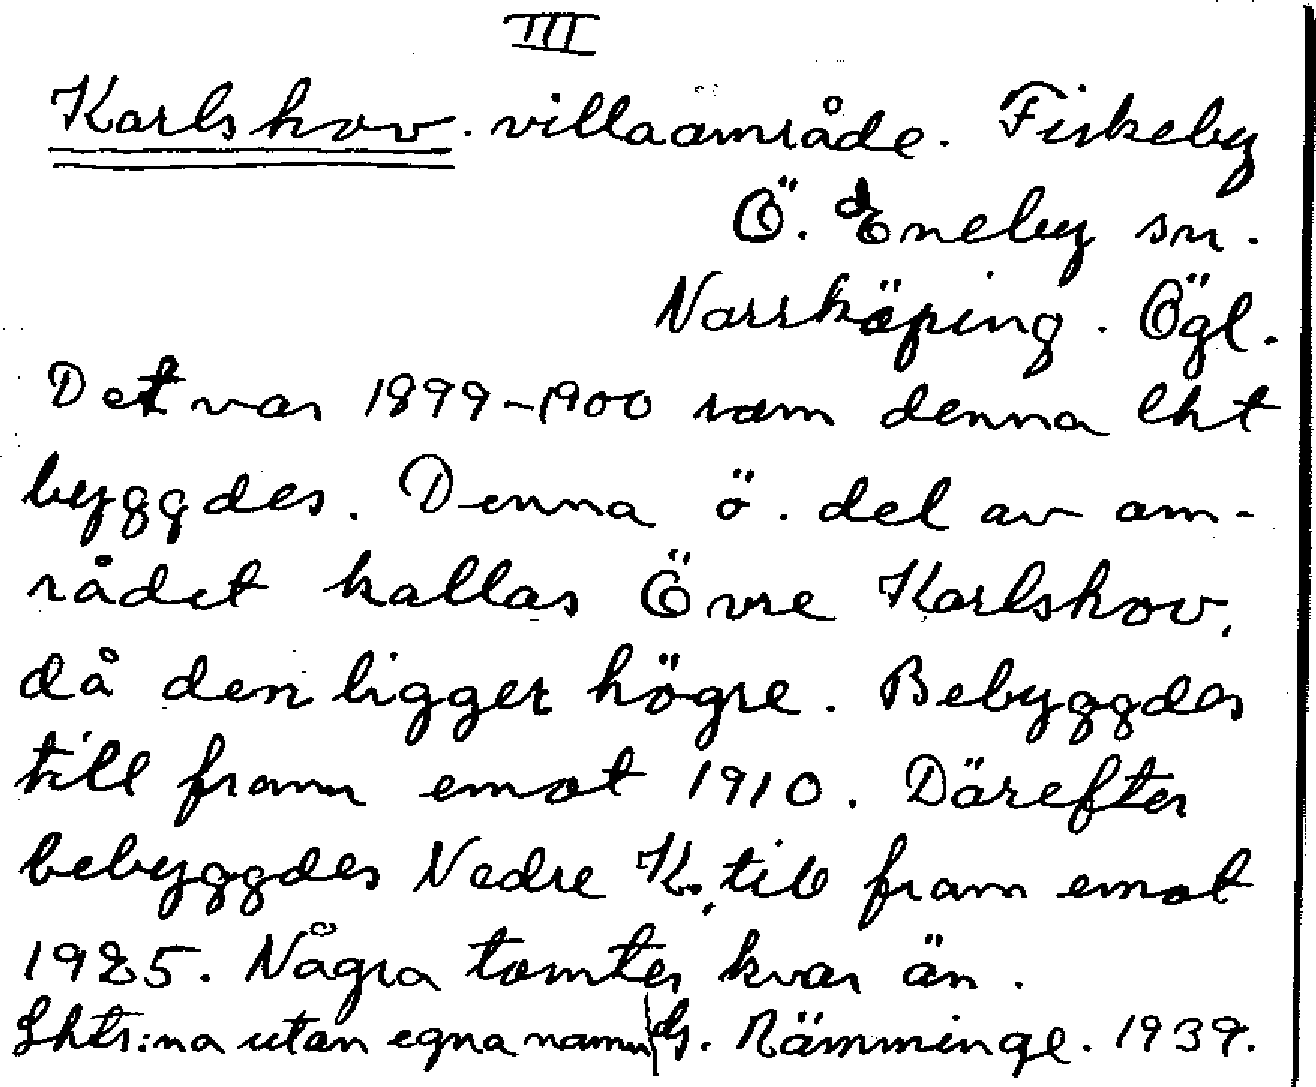 III
Karlshov. villaområde. Fiskeby
Ö. Eneby sn.
Norrköping. Ögl.
Det var 1899-1900 som denna lht
byggdes. Denna ö. del av om-
rådet kallas Övre Karlshov,
då den ligger högre. Bebyggdes
till fram emot 1910. Därefter
bebyggdes Nedre K., till fram emot
1925. Några tomter kvar än.
Lhts:na utan egna namn G. Rämminge. 1939.